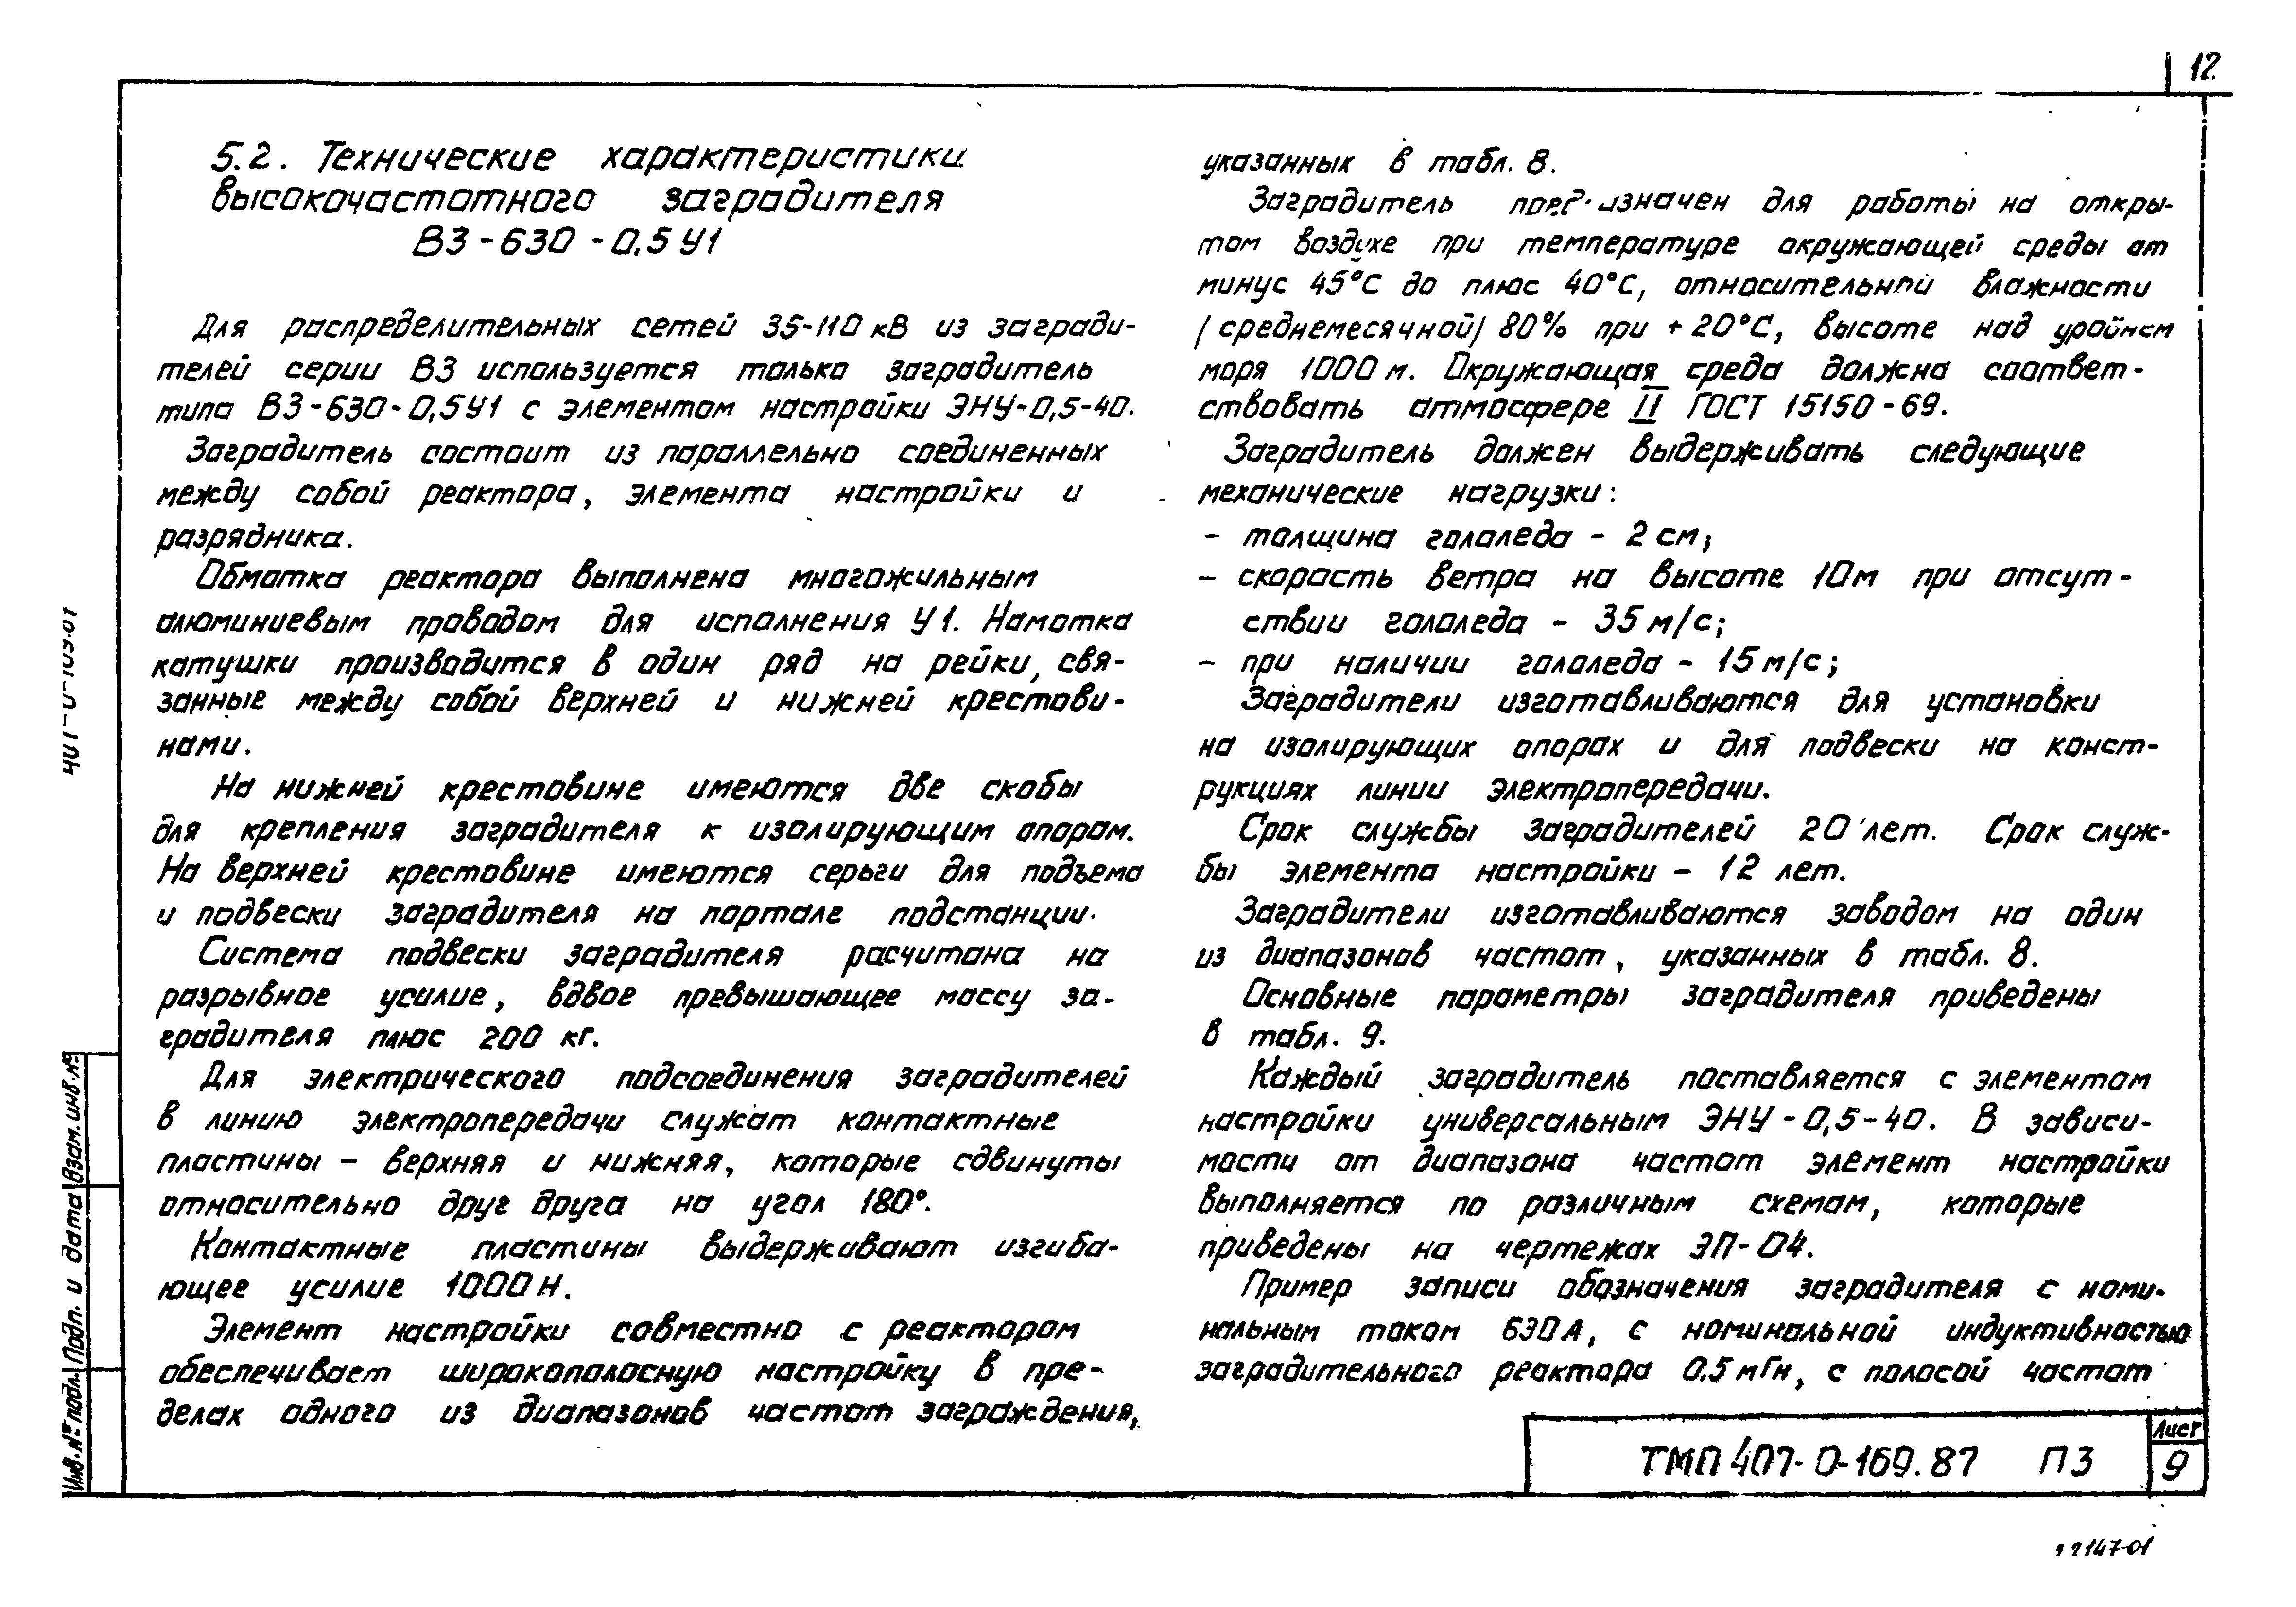 12
5.2. Технические характеристики
высокочастотного заградителя
ВЗ-630-0,5У1
Для распределительных сетей 35-110 кВ из загради-
телей серии ВЗ используется только заградитель
типа ВЗ-630-0,5У1 с элементом настройки ЭНУ-0,5-40.
Заградитель состоит из параллельно соединенных
между собой реактора, элемента настройки и
разрядника.
Обмотка реактора выполнена многожильным
алюминиевым проводом для исполнения У1. Намотка
катушки производится в один ряд на рейки, свя-
занные между собой верхней и нижней крестови-
нами.
На нижней крестовине имеются две скобы
для крепления заградителя к изолирующим опорам.
На верхней крестовине имеются серьги для подъема
и подвески заградителя на портале подстанции.
Система подвески заградителя расчитана на
разрывное усилие, вдвое превышающее массу за-
градителя плюс 200 кг.
Для электрического подсоединения заградителей
в линию электропередачи служат контактные
пластины – верхняя и нижняя, которые сдвинуты
относительно друг друга на угол 180°.
Контактные пластины выдерживают изгиба-
ющее усилие 1000 Н.
Элемент настройки совместно с реактором
обеспечивает широкополосную настройку в пре-
делах одного из диапазонов частот заграждения,
указанных в табл. 8.
Заградитель для работы на откры-
том воздухе при температуре окружающей среды от
минус 45°С до плюс 40°С, относительной влажности
/среднемесячной/ 80% при +20°С, высоте над уровнем
моря 1000 м. Окружающая среда должна соответ-
ствовать атмосфере II ГОСТ 15150-69.
Заградитель должен выдерживать следующие
механические нагрузки:
– толщина гололеда – 2 см;
– скорость ветра на высоте 10м при отсут-
ствии гололеда – 35 м/с;
– при наличии гололеда – 15 м/с;
Заградители изготавливаются для установки
на изолирующих опорах и для подвески на конст-
рукциях линии электропередачи.
Срок службы заградителей 20 лет. Срок служ-
бы элемента настройки – 12 лет.
Заградители изготавливаются заводом на один
из диапазонов частот, указанных в табл. 8.
Основные параметры заградителя приведены
в табл. 9.
Каждый заградитель поставляется с элементом
настройки универсальным ЭНУ-0,5-40. В зависи-
мости от диапазона частот элемент настройки
выполняется по различным схемам, которые
приведены на чертежах ЭП-04.
Пример записи обозначения заградителя с номи-
нальным током 630А, с номинальной индуктивностью
заградительного реактора 0.5 мГн, с полосой частот
ТМП 407-0-169.87 ПЗ
Лист
9
Инв. № подл. Подп. и дата Взам. инв. №
2147-01